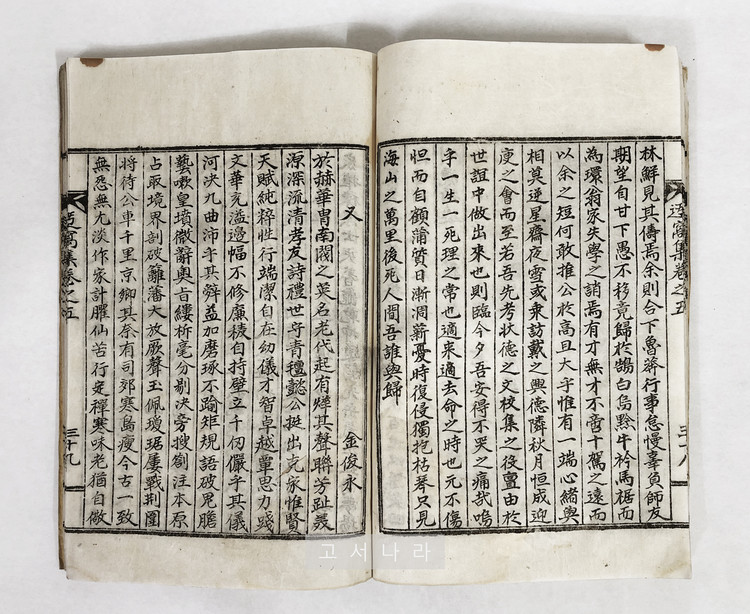 迂窩集卷之五 三十八
林鮮見其儔焉余則合下魯莽行事怠慢辜負師友
期望自甘下愚不移竟歸於鵠白烏黔牛衿馬裾而
為環翁家失學之誚焉有才無才不啻十駕之遠而
以余之短何敢推公於高且大乎惟有一端心緒與
相莫逆星齋夜雪或乘訪戴之興德隣秋月恒成迎
庾之會而至若吾先考狀德之文校集之役亶由於
世誼中做出來也則臨今夕吾安得不哭之痛哉嗚
乎一生一死理之常也適來適去命之時也元不傷
怛而自顧蒲質日漸凋薪憂時復侵獨抱枯琴只見
海山之萬里後死人間吾誰與歸
又 金俊永
於赫華胄南閥之英名老代起有燁其聲聯芳趾羙
源深流清孝友詩禮世守青氈懿公挺出克家惟賢
天賦純粹性行端潔自在幼儀才智卓越覃思力踐
文華充溢邊幅不修廉稜自持壁立千仞儼乎其儀
河决九曲沛乎其辭益加磨琢不踰矩規語破鬼膽
藝嗽皇墳微辭奧旨縷析毫分剔决旁搜劄注本原
占取境界剖破籬藩大放厥聲玉佩瓊琚屢戰荆圍
將待公車千里京鄉其奈有司郊寒島瘦今古一致
無怨無尤淡作家計臞仙苦行定禪寒味老猶自儆
迂窩集卷之五 三十九
고서나라